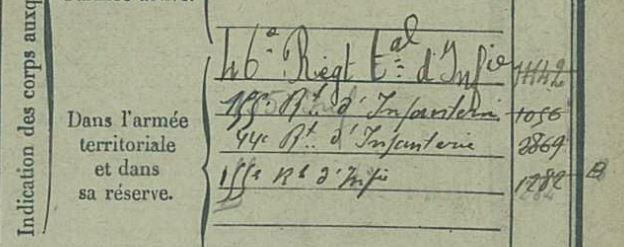 Indication des corps auxq
Dans l'armée
territoriale
et dans
sa réserve.
46e Régt tal d'Infie
155e Rt. d'Infanterie 1056
44e Rt. d'Infanterie 2869
155e Rt d'Infie 1282